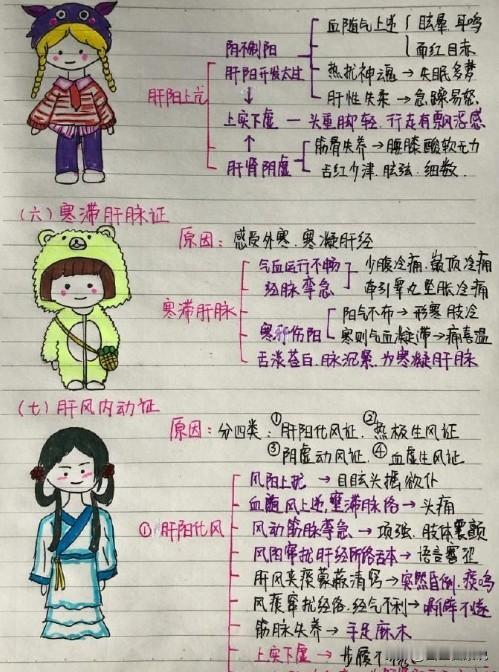 阴不制阳
血随气上逆 眩晕 耳鸣
面红目赤
肝阳上亢
肝阳升发太过
热扰神魂→失眠多梦
肝性失柔→急躁易怒
上实下虚—头重脚轻.行走有飘浮感
肝肾阴虚
筋骨失养→腰膝酸软无力
舌红少津.脉弦.细数.
(六)寒滞肝脉证
原因:感受外寒.寒凝肝经
寒滞肝脉
气血运行不畅
经脉挛急
少腹冷痛.巅顶冷痛
牵引睾丸坠胀冷痛
寒邪伤阳
阳气不布→形寒肢冷
寒则气血凝滞→痛喜温
舌淡苔白.脉沉紧.为寒凝肝脉
(七)肝风内动证
原因:分四类:①肝阳化风证.②热极生风证
③阴虚动风证.④血虚生风证
①肝阳化风
风阳上扰→目眩头摇欲仆
血随风上逆.壅滞脉络→头痛
风动筋脉挛急→项强.肢体震颤
语言謇涩
肝风夹痰蒙蔽清窍→突然昏倒.痰鸣
风痰窜扰经络.经气不利→
筋脉失养→手足麻木
上实下虚→步履不